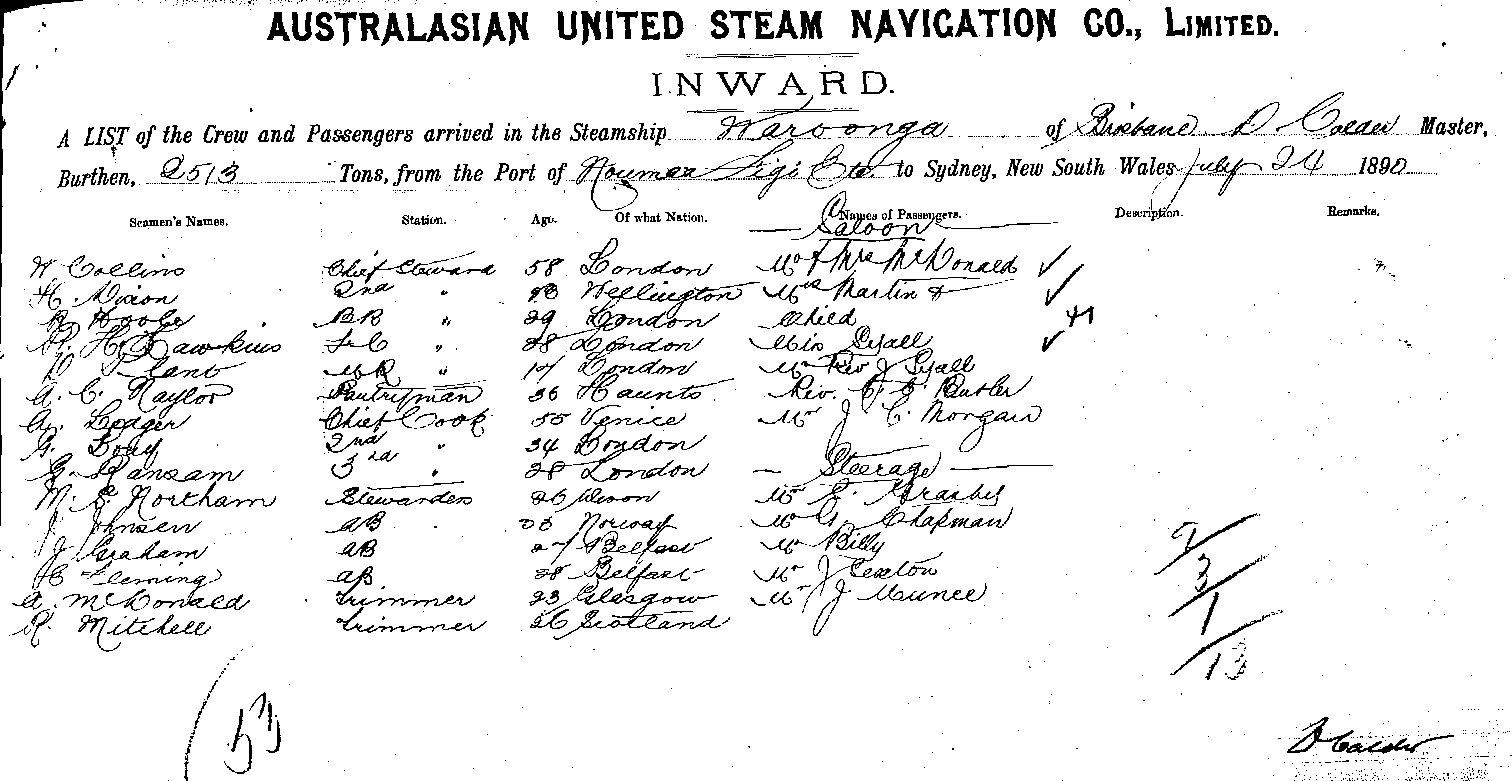 AUSTRALASIAN UNITED STEAM NAVIGATION CO., LIMITED.
INWARD.
A LIST of the Crew and Passengers arrived in the Steamship Waroonga of Brisbane D Calder Master,
Burthen, 2513 Tons, from the Port of Noumea Figi Etc. to Sydney, New South Wales July 24 1890
Seamen's Names. Station. Age. Of what Nation. Names of Passengers. Description. Remarks.
Saloon
W Collins Chief Steward 58 London Mr & Mrs McDonald
H. Dixon 2nd " Wellington Mrs Martin &
BB " 29 London Child
H. Hawkins " 28 London Miss Lyall
" London Mr Rev J Lyall
A. C. Naylor Pantryman 36 Haunts Rev. Butler
A. Ledger Chief Cook 55 Venice Mr J C Morgan
G. 2nd " 34 London
G. Ransam 3rd " 28 London Steerage
M. E. Northam Stewardess 26 Devon Mr E.
J. Johnsen AB Norway Mr G. Chapman
J Graham AB 27 Belfast Mr Billy
H Fleming AB 28 Belfast Mr J Sexton
A. McDonald Trimmer 23 Glasgow Mr J Munce
R. Mitchell Trimmer 26 Scotland
9
3
1
13
(53
D Calder